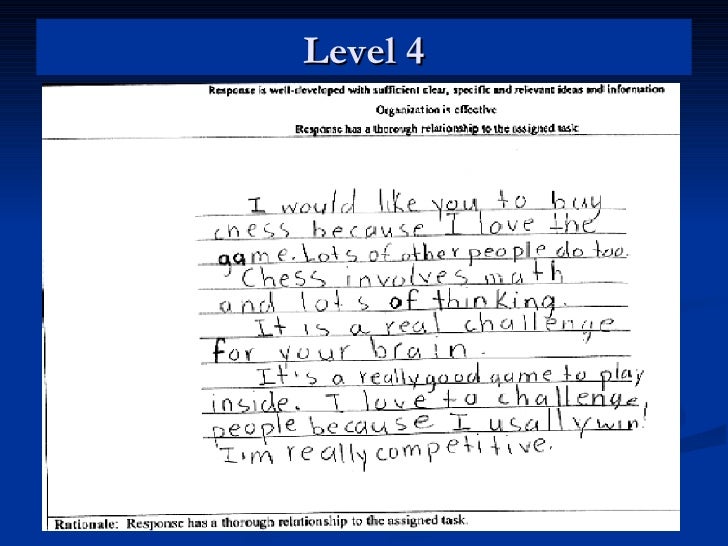 Level 4
Response is well-developed with sufficient clear, specific and relevant ideas and information
Organization is effective
Response has a thorough relationship to the assigned task
I would like you to buy
chess because I love the
game. Lots of other people do too.
Chess involves math
and lots of thinking.
It is a real challenge
for your brain.
It's a really good game to play
inside. I love to challenge
people because I usally win!
I'm really competitive.
Rationale: Response has a thorough relationship to the assigned task.